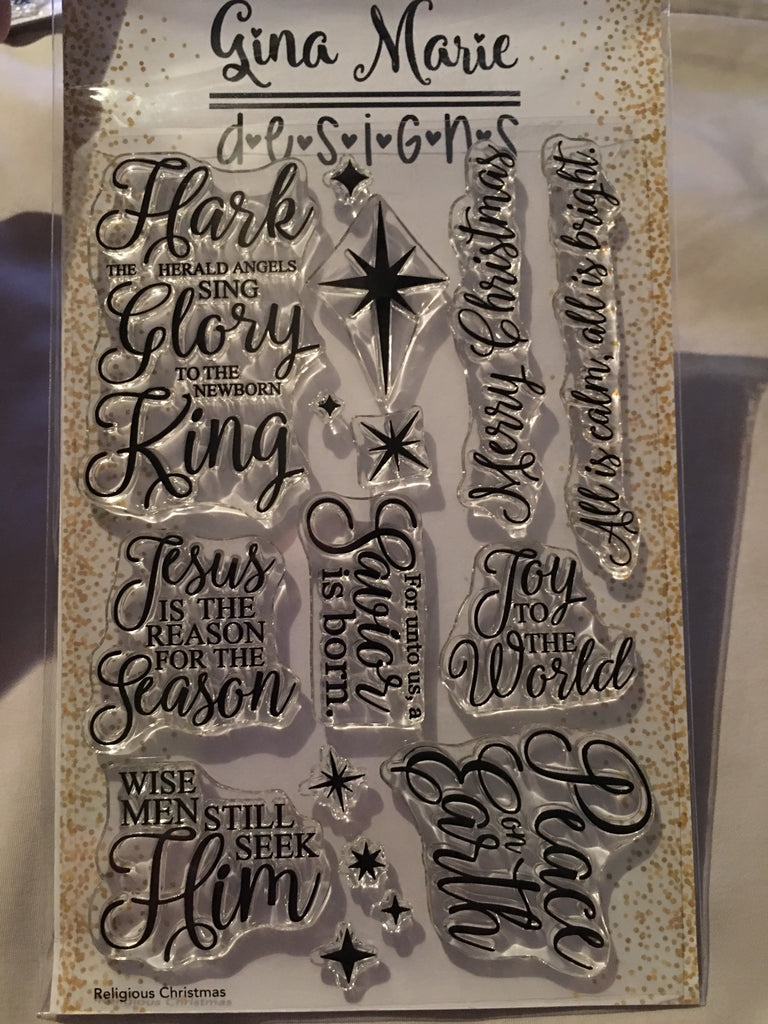 Gina Marie
designs
Hark
THE HERALD ANGELS
SING
Glory
TO THE
NEWBORN
King
Merry Christmas
All is calm, all is bright.
Jesus
IS THE
REASON
FOR THE
Season
For unto us, a
Savior
is born.
Joy
TO
THE
World
WISE
MEN STILL
SEEK
Him
Peace
on
Earth
Religious Christmas